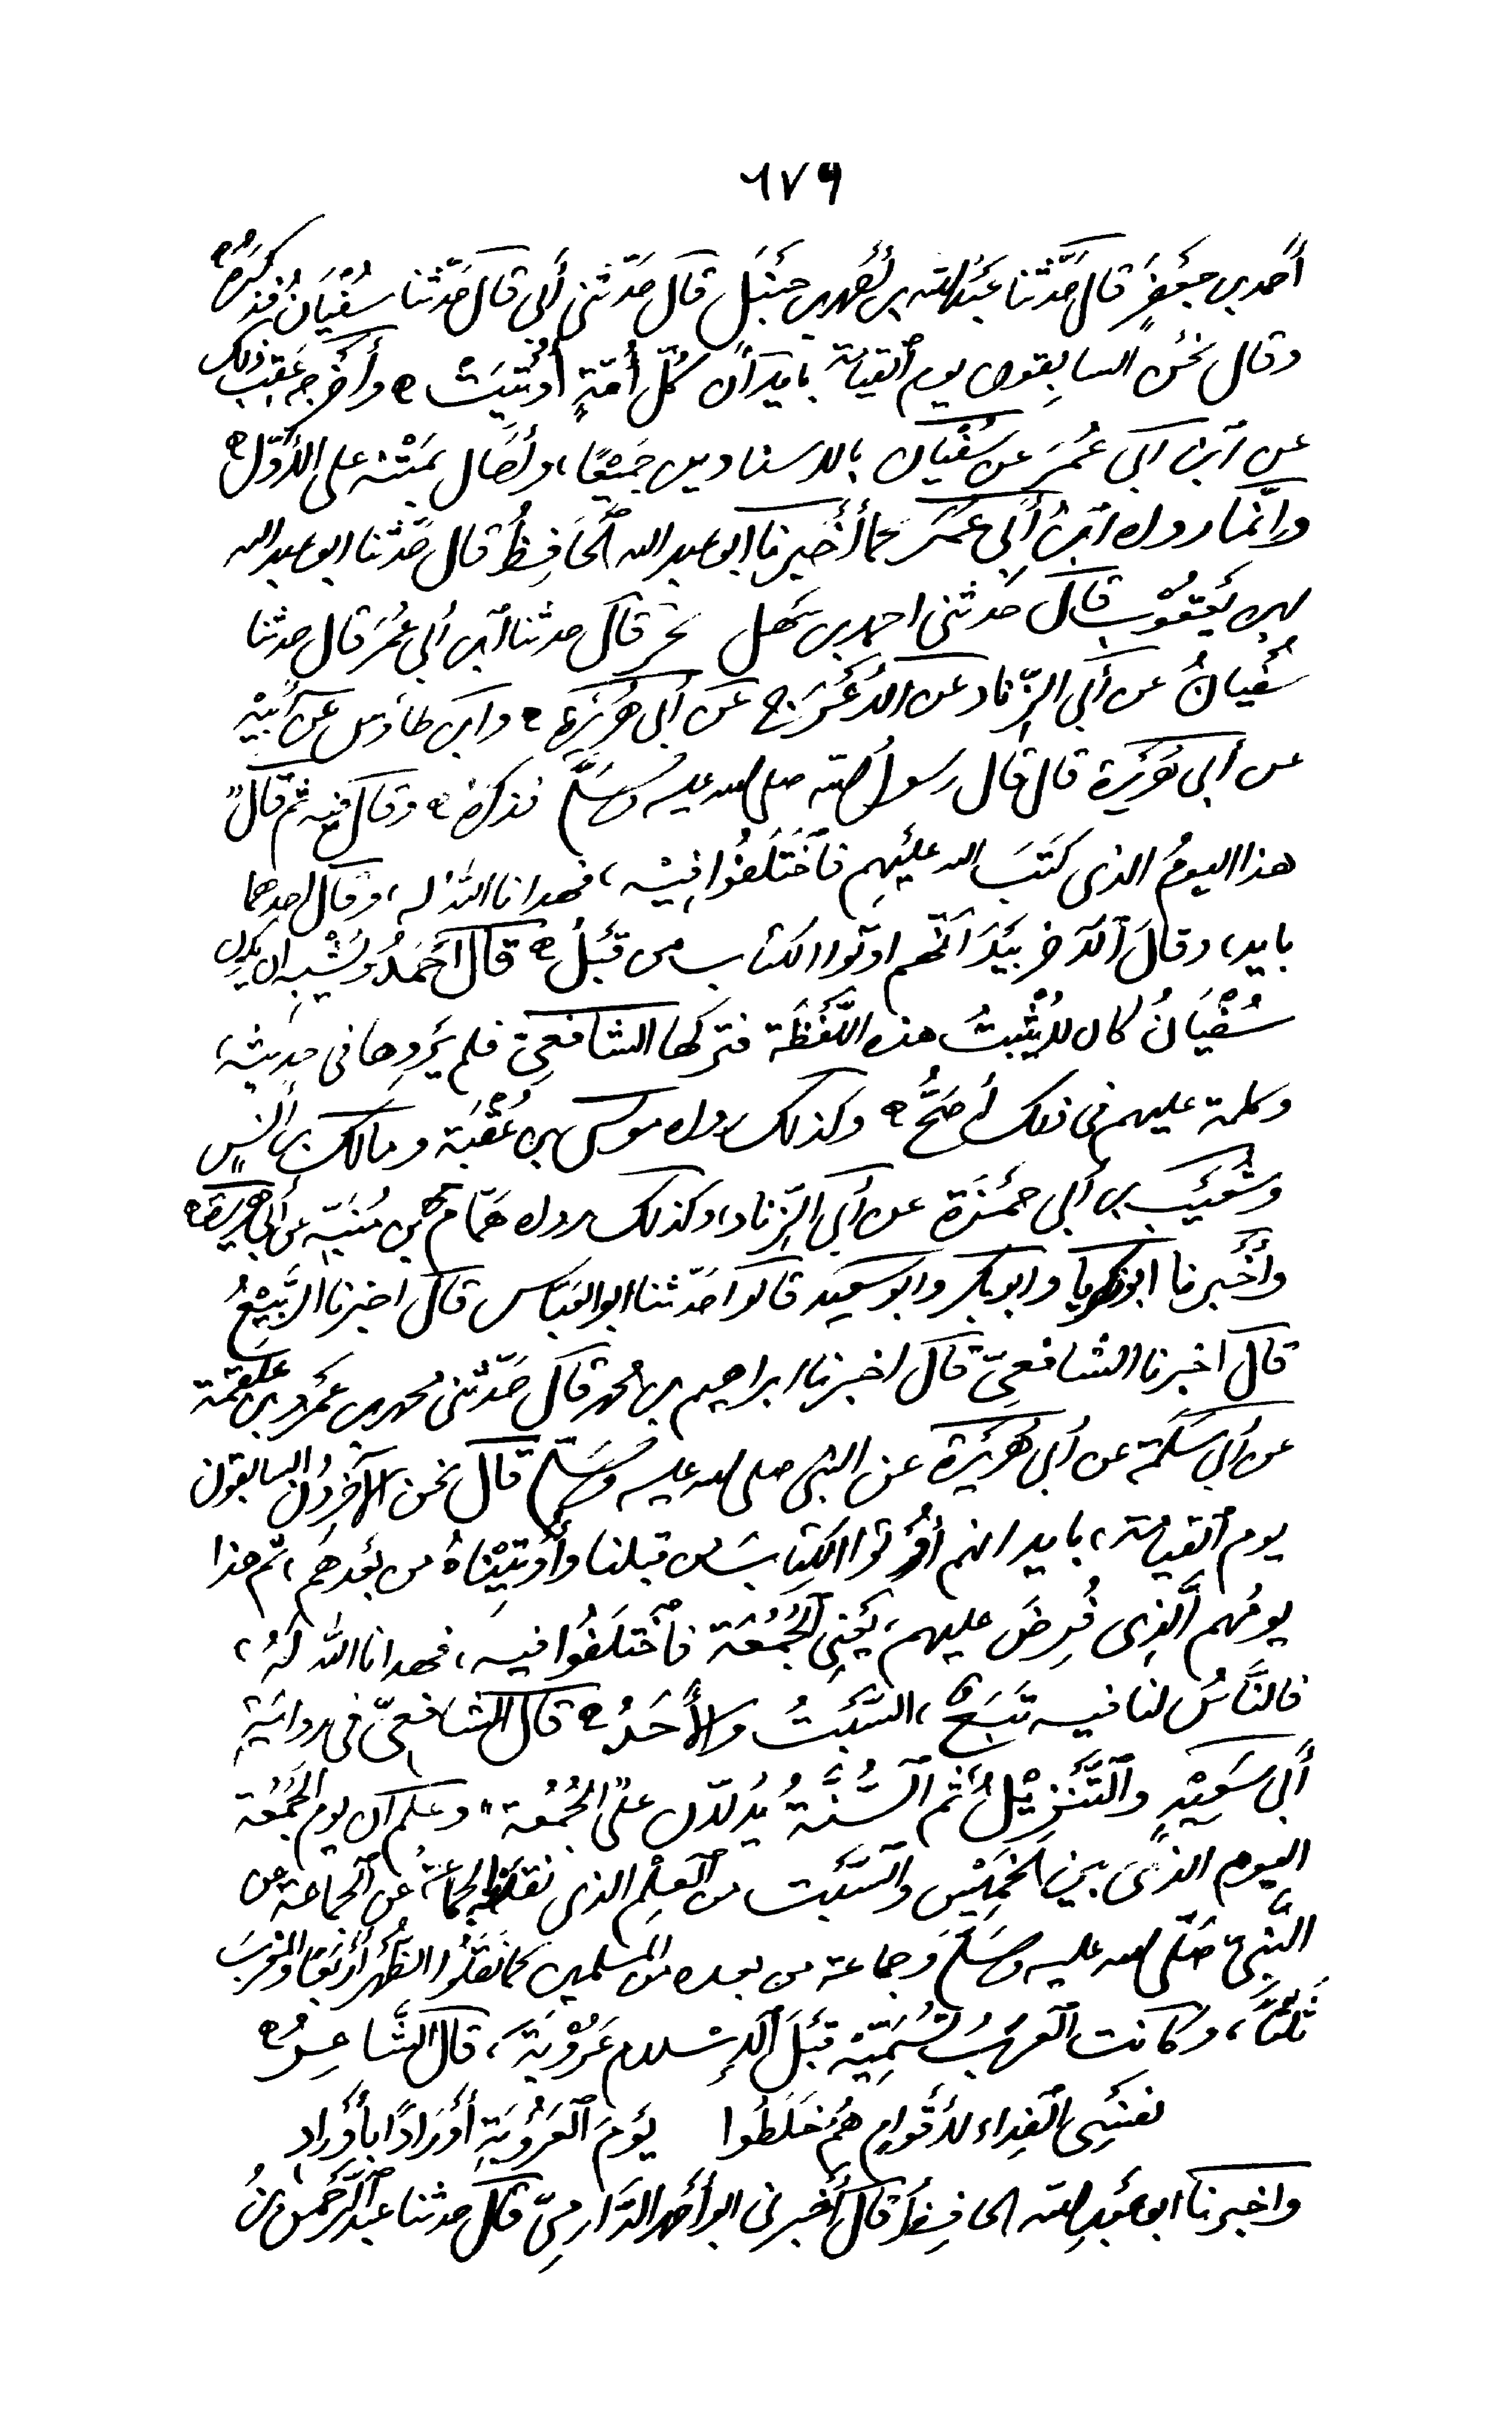 ٦٧٩
أحمد بن جعفر قال حدثنا عبد الله بن أحمد بن حنبل قال حدثني أبي قال حدثنا سفيان فذكره
وقال نحن السابقون يوم القيامة بايد أن كل أمة أوتيت وأخرجه عقيب ذلك
عن ابن ابي عمر عن سفيان بالاسنادين جميعا، وأحال بمتنه على الأول
وإنما رواه ابن أبي عمر كما أخبرنا ابو عبد الله الحافظ قال حدثنا ابو عبد الله
بن يعقوب قال حدثني احمد بن سهل قال حدثنا ابن أبي عمر قال حدثنا
سفيان عن أبي الزناد عن الأعرج عن أبي هريرة وابن طاوس عن أبيه
عن أبي هريرة قال قال رسول الله صلى الله عليه وسلم فذكره وقال فيه ثم قال
هذا اليوم الذى كتب الله عليهم فاختلفوا فيه، فهدانا الله له، وقال احدهما
بايد، وقال الآخر بيد انهم اوتوا الكتاب من قبل قال أحمد ويشبه ان يكون
سفيان كان لا يثبت هذه اللفظة فتركها الشافعي فلم يروها في حديثه،
وكلمة عليهم في ذلك أصح وكذلك رواه موسى بن عقبة ومالك بن أنس
وشعيب بن أبي حمزة عن أبي الزناد، وكذلك رواه همام بن منبه عن أبي هريرة
وأخبرنا ابو زكريا وابو بكر وابو سعيد قالوا حدثنا ابو العباس قال اخبرنا الربيع
قال اخبرنا الشافعي قال اخبرنا ابراهيم بن محمد قال حدثني محمد بن عمرو بن علقمة
عن أبي سلمة عن أبي هريرة عن النبي صلى الله عليه وسلم قال نحن الآخرون السابقون
يوم القيامة، بايد انهم أوتوا الكتاب من قبلنا وأوتيناه من بعدهم، ثم هذا
يومهم الذى فرض عليهم، يعني الجمعة فاختلفوا فيه، فهدانا الله له،
فالناس لنا فيه تبع، السبت والأحد قال الشافعي في رواية
أبي سعيد والتنزيل ثم السنة يدلان على الجمعة، وعلم ان يوم الجمعة
اليوم الذي بين الخميس والسبت من العلم الذى نقله الجماعة عن الجماعة عن
النبي صلى الله عليه وسلم وجماعة من بعده من المسلمين كما نقلوا الظهر أربعا والمغرب
ثلثا، وكانت العرب تسميه قبل الإسلام عروبة، قال الشاعر
نفسي الفداء لأقوام هم خلطوا يوم العروبة أورادا بأوراد
واخبرنا ابو عبد الله الحافظ قال أخبرني ابو أحمد الدارمي قال حدثنا عبد الرحمن بن